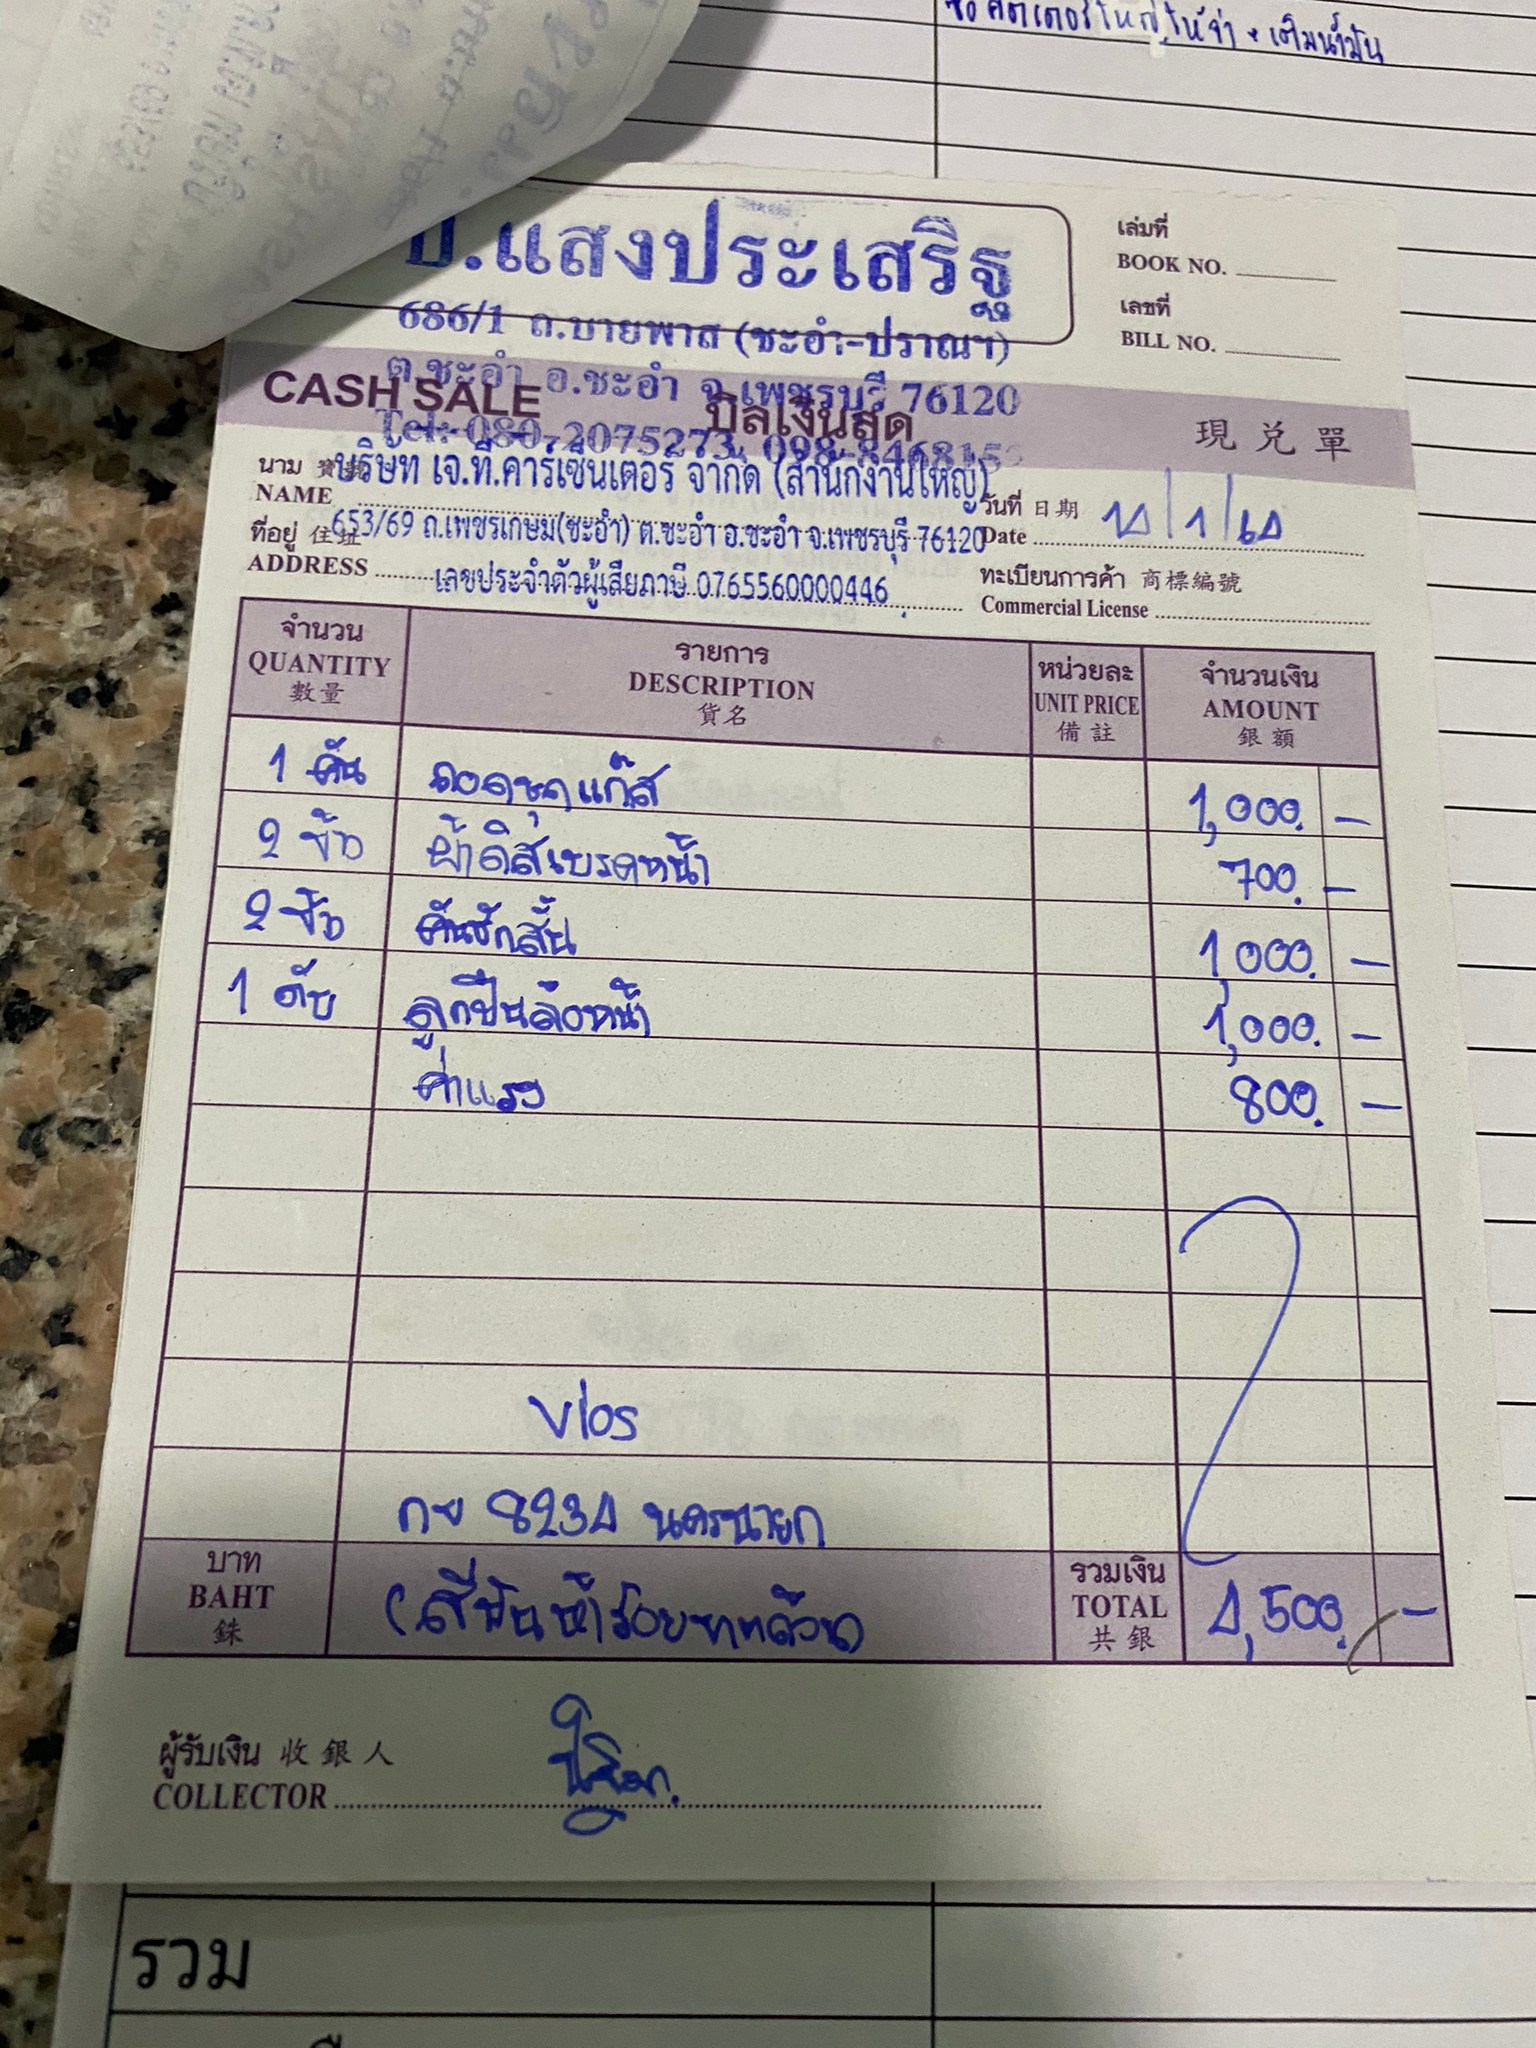 ให้ช่า + เติมน้ำมัน
.แสงประเสริฐ
686/1 ถ.บายพาส (ชะอำ-ปราณฯ)
ต.ชะอำ อ.ชะอำ จ.เพชรบุรี 76120
Tel: 080-2075273, 098-846815
เล่มที่
BOOK NO.
เลขที่
BILL NO.
CASH SALE บิลเงินสด 現兌單
นาม 寶號 บริษัท เจ.ที.คาร์เซ็นเตอร์ จำกัด (สำนักงานใหญ่)
NAME
วันที่ 日期
Date /1/
ที่อยู่ 住址 653/69 ถ.เพชรเกษม(ชะอำ) ต.ชะอำ อ.ชะอำ จ.เพชรบุรี 76120
ADDRESS เลขประจำตัวผู้เสียภาษี 0765560000446
ทะเบียนการค้า 商標編號
Commercial License
จำนวน รายการ หน่วยละ จำนวนเงิน
QUANTITY DESCRIPTION UNIT PRICE AMOUNT
數量 貨名 備註 銀額
1 คัน ถอดชุดแก๊ส 1,000. -
2 ข้าง ผ้าดิสเบรคหน้า 700. -
2 ข้าง คันชักสั้น 1,000. -
1 ตับ ลูกปืนล้อหน้า 1,000. -
ค่าแรง 800. -
Vios
กข 8234 นครนายก
บาท
BAHT (สี่พันห้าร้อยบาทถ้วน)
銖
รวมเงิน
TOTAL 4,500. -
共銀
ผู้รับเงิน 收銀人
COLLECTOR
รวม